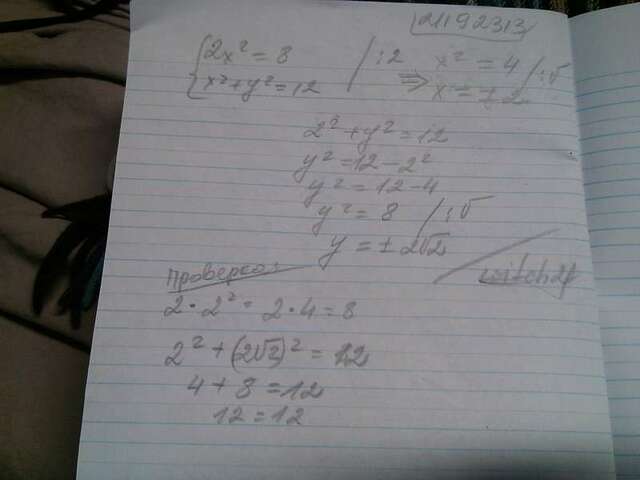 21192313
{2x² = 8 /:2 ⇒ x² = 4 /:√
{x²+y²=12 x = ±2
2²+y²=12
y²=12-2²
y² = 12-4
y² = 8 /:√
y = ± 2√2
Проверка:
2·2² = 2·4 = 8
2² + (2√2)² = 12
4 + 8 = 12
12 = 12